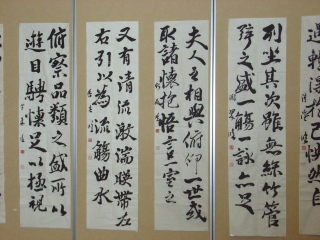 遇輒得
快然自
列坐其次雖無絲竹管
弦之盛一觴一詠亦足
夫人之相與俯仰一世或
取諸懷抱悟言一室之
又有清流激湍映帶左
右引以為流觴曲水
俯察品類之盛所以
遊目騁懷足以極視